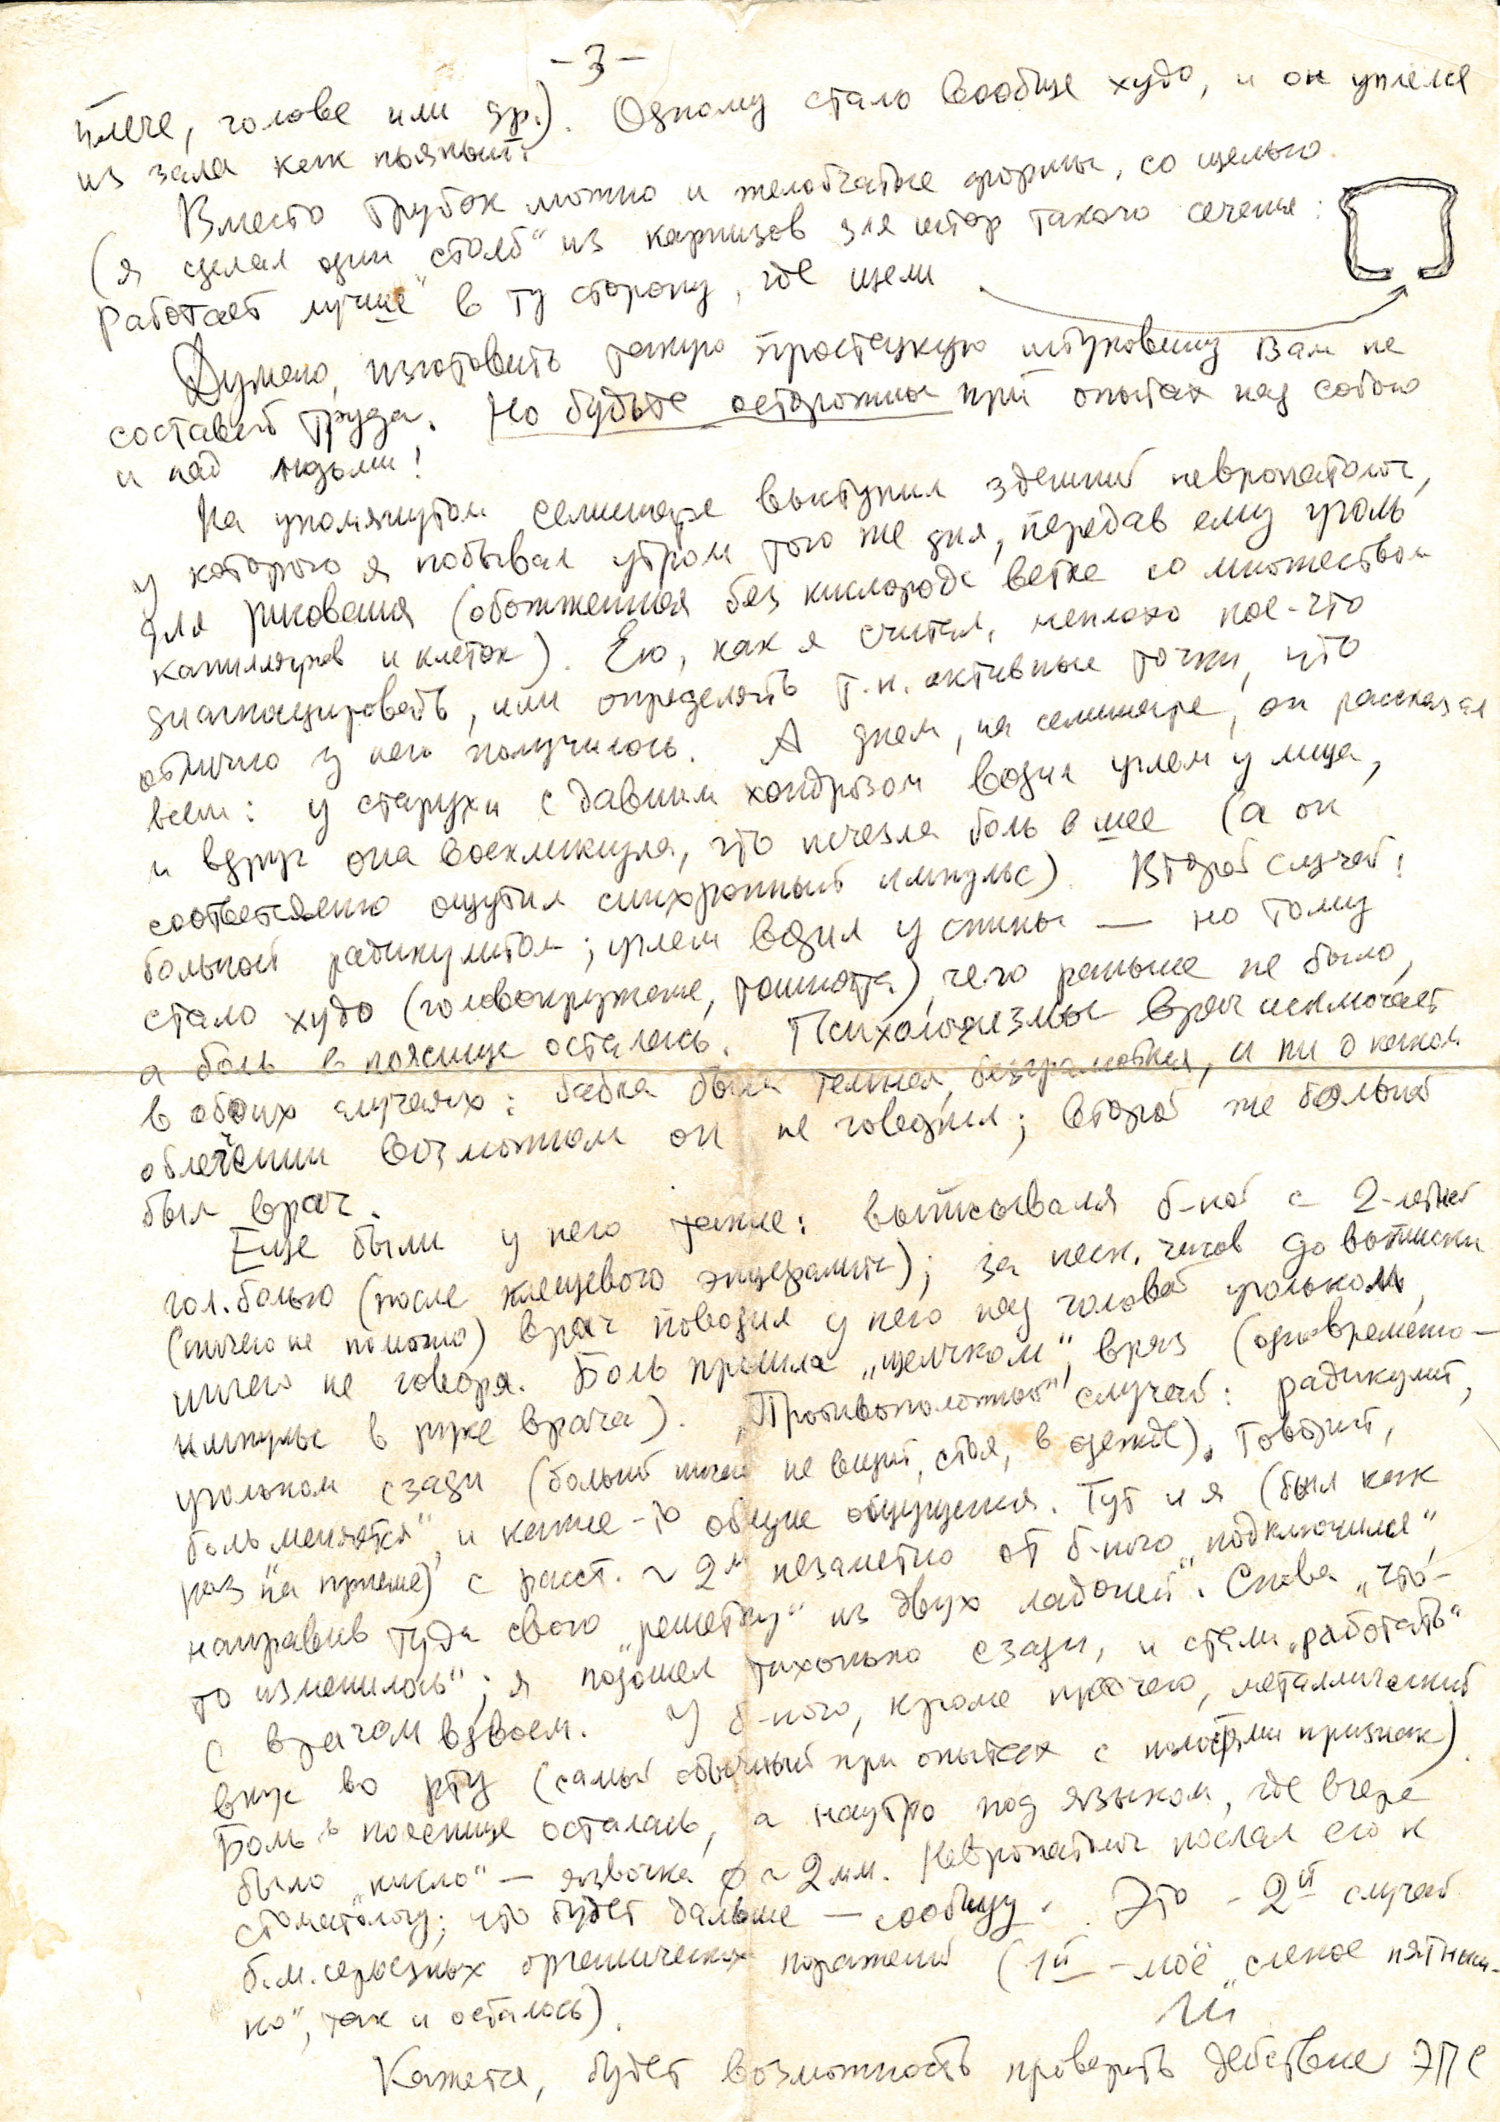 - 3 -
плече, голове или др.). Одному стало вообще худо, и он уплелся
из зала как пьяный.
Вместо трубок можно и желобчатые формы, со щелью
(я сделал один „столб“ из карнизов для штор такого сечения:
Работает лучше в ту сторону, где щели
Думаю, изготовить такую простецкую штуковину Вам не
составит труда. Но будьте осторожны при опытах над собою
и над людьми!
На упомянутом семинаре выступил здешний невропатолог,
у которого я побывал утром того же дня, передав ему уголь
для рисования (обожженная без кислорода ветка со множеством
капилляров и клеток). Ею, как я считал, неплохо кое-что
диагносцировать, или определять т.н. активные точки, что
отлично у него получилось. А днем, на семинаре, он рассказал
всем: у старухи с давним хондрозом водил углем у лица,
и вдруг она воскликнула, что исчезла боль в шее (а он
соответственно ощутил синхронный импульс). Второй случай:
больной радикулитом; углем водил у спины — но тому
стало худо (головокружение, тошнота), чего раньше не было,
а боль в пояснице осталась. Психологизмы врач исключает
в обоих случаях: бабка была темная, безграмотная, и ни о каком
облегчении возможном он не говорил; второй же больной
был врач.
Еще были у него такие: выписывался б-ной с 2-летней
гол. болью (после клещевого энцефалита); за неск. часов до выписки
(ничего не помогло) врач поводил у него над головой угольком,
ничего не говоря. Боль прошла „щелчком“, враз (одновременно —
импульс в руке врача). „Противоположный“ случай: радикулит,
угольком сзади (больной ничего не видит, стоя, в одежде). Говорит,
боль „меняется“, и какие-то общие ощущения. Тут и я (был как
раз на приеме) с расст. ~ 2м незаметно от б-ного „подключился“,
направив туда свою „решетку“ из двух ладоней. Снова „что-
то изменилось“; я подошел тихонько сзади, и стали „работать“
с врачом вдвоем. У б-ного, кроме прочего, металлический
вкус во рту (самый обычный при опытах с полостями признак).
Боль в пояснице осталась, а наутро под языком, где вчера
было „кисло“ — язвочка ø ~ 2 мм. Невропатолог послал его к
стоматологу; что будет дальше — сообщу. Это - 2й случай
б.м. серьезных органических поражений (1й - моё „слепое пятныш-
ко“, так и осталось).
Кажется, будет возможность проверить действие ЭПС